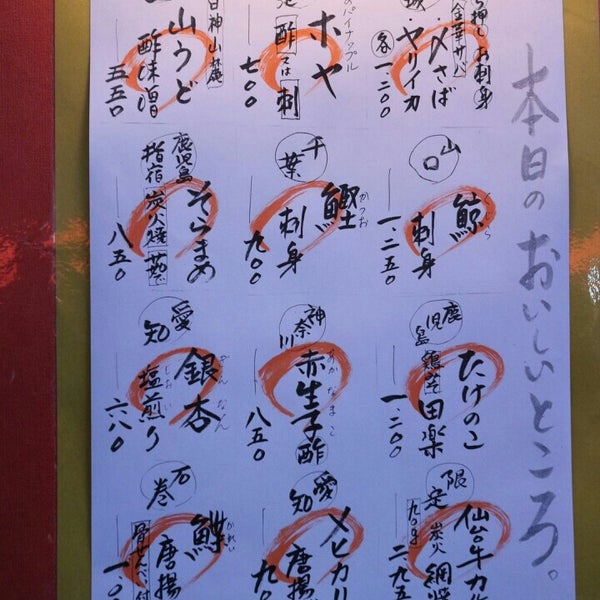 本日のおいしいところ。
お刺身
金華サバ
〆さば
ヤリイカ
各
一、二〇〇
パイナップル
ホヤ
酢又は刺
七〇〇
山うど
酢味噌
五五〇
山口
くじら
鯨
刺身
一、二五〇
千葉
かつお
鰹
刺身
九〇〇
鹿児島
指宿
そらまめ
炭火焼
茹で
八五〇
鹿児島
たけのこ
田楽
一、二〇〇
神奈川
あかなまこ
赤生子酢
八五〇
愛知
ぎんなん
銀杏
しおいり
塩煎り
六八〇
限定
仙台牛
炭火
九〇g
二、九五
愛知
メヒカリ
唐揚
九〇
石巻
かれい
鰈
唐揚
骨せんべい付